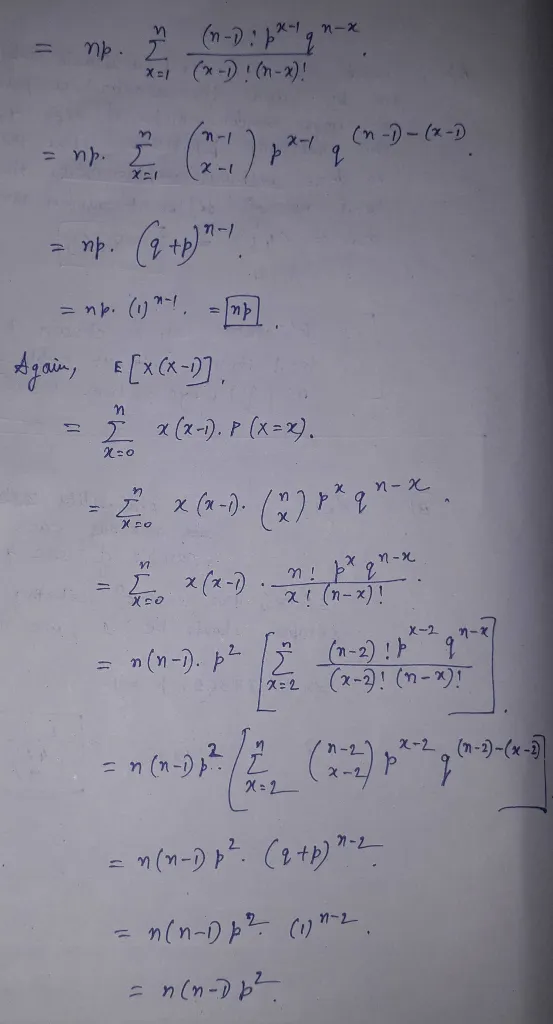 = np. ∑_{x=1}^{n} (n-1)! p^{x-1} q^{n-x} / (x-1)! (n-x)! .
= np. ∑_{x=1}^{n} (n-1 x-1) p^{x-1} q^{(n-1)-(x-1)}.
= np. (q+p)^{n-1}.
= np. (1)^{n-1}. = np.
Again, E[X(X-1)].
= ∑_{x=0}^{n} x(x-1). P(X=x).
= ∑_{x=0}^{n} x(x-1). (n x) p^{x} q^{n-x}.
= ∑_{x=0}^{n} x(x-1) . n! p^{x} q^{n-x} / x! (n-x)! .
= n(n-1). p^{2} [∑_{x=2}^{n} (n-2)! p^{x-2} q^{n-x} / (x-2)! (n-x)!].
= n(n-1)p^{2}. [∑_{x=2}^{n} (n-2 x-2) p^{x-2} q^{(n-2)-(x-2)}]
= n(n-1) p^{2}. (q+p)^{n-2}.
= n(n-1) p^{2}. (1)^{n-2}.
= n(n-1) p^{2}.